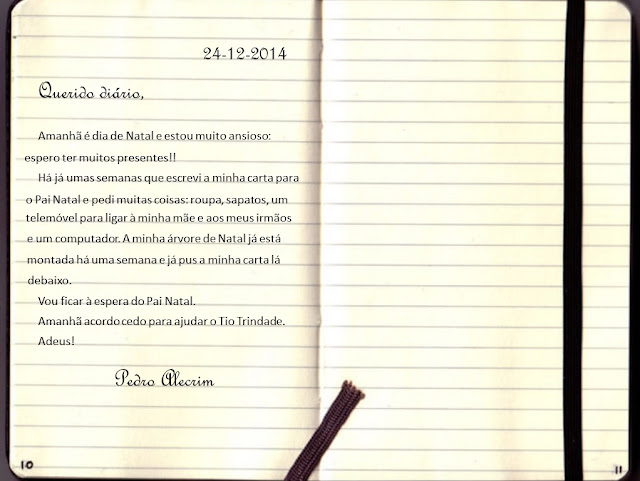 24-12-2014
Querido diário,
Amanhã é dia de Natal e estou muito ansioso:
espero ter muitos presentes!!
Há já umas semanas que escrevi a minha carta para
o Pai Natal e pedi muitas coisas: roupa, sapatos, um
telemóvel para ligar à minha mãe e aos meus irmãos
e um computador. A minha árvore de Natal já está
montada há uma semana e já pus a minha carta lá
debaixo.
Vou ficar à espera do Pai Natal.
Amanhã acordo cedo para ajudar o Tio Trindade.
Adeus!
Pedro Alecrim
10
11